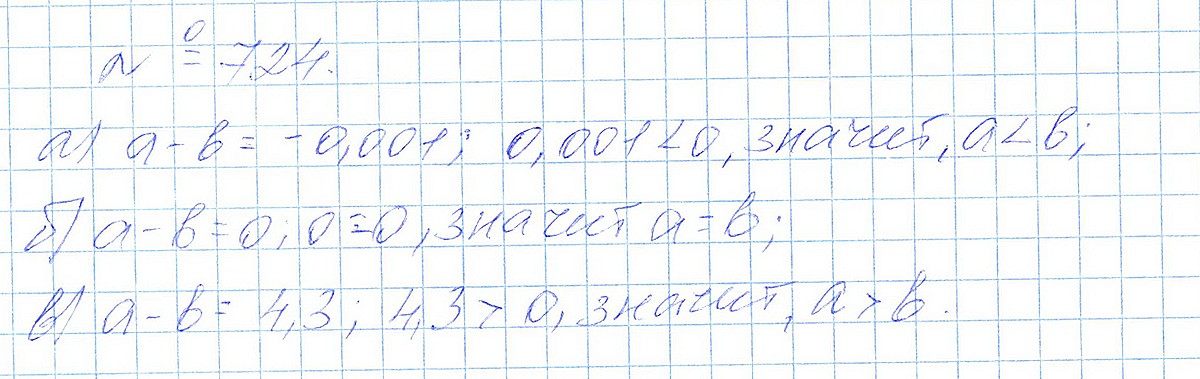 № 724.
а) a - b = -0,001; 0,001 < 0, значит, a < b;
б) a - b = 0; 0 = 0, значит a = b;
в) a - b = 4,3; 4,3 > 0, значит, a > b.